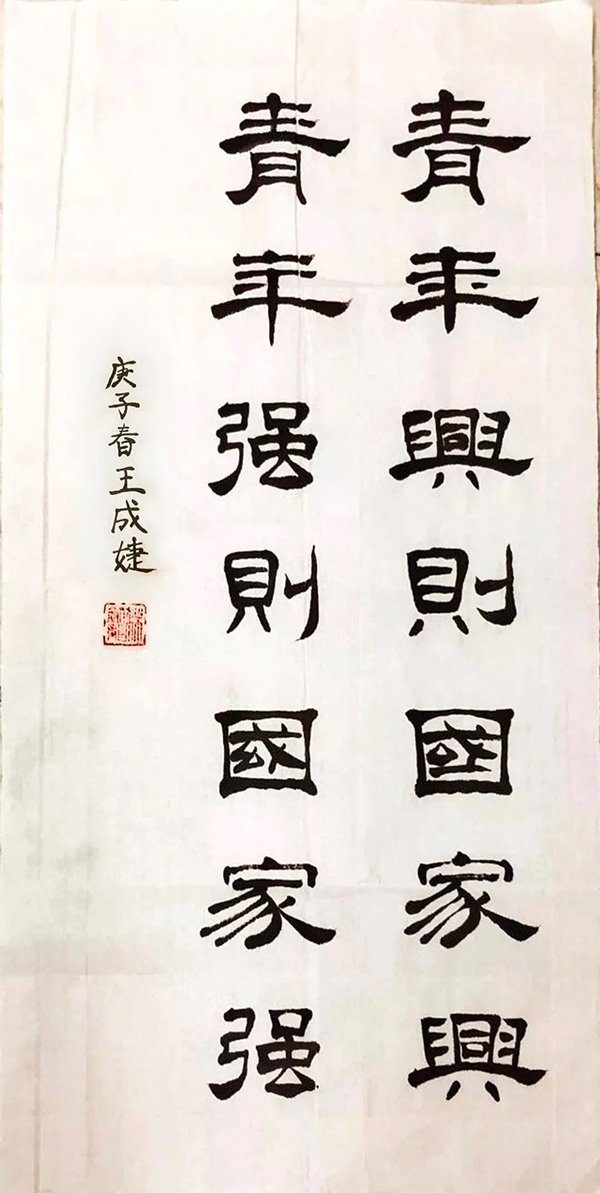 青年興則國家興
青年强則國家强
庚子春王成婕